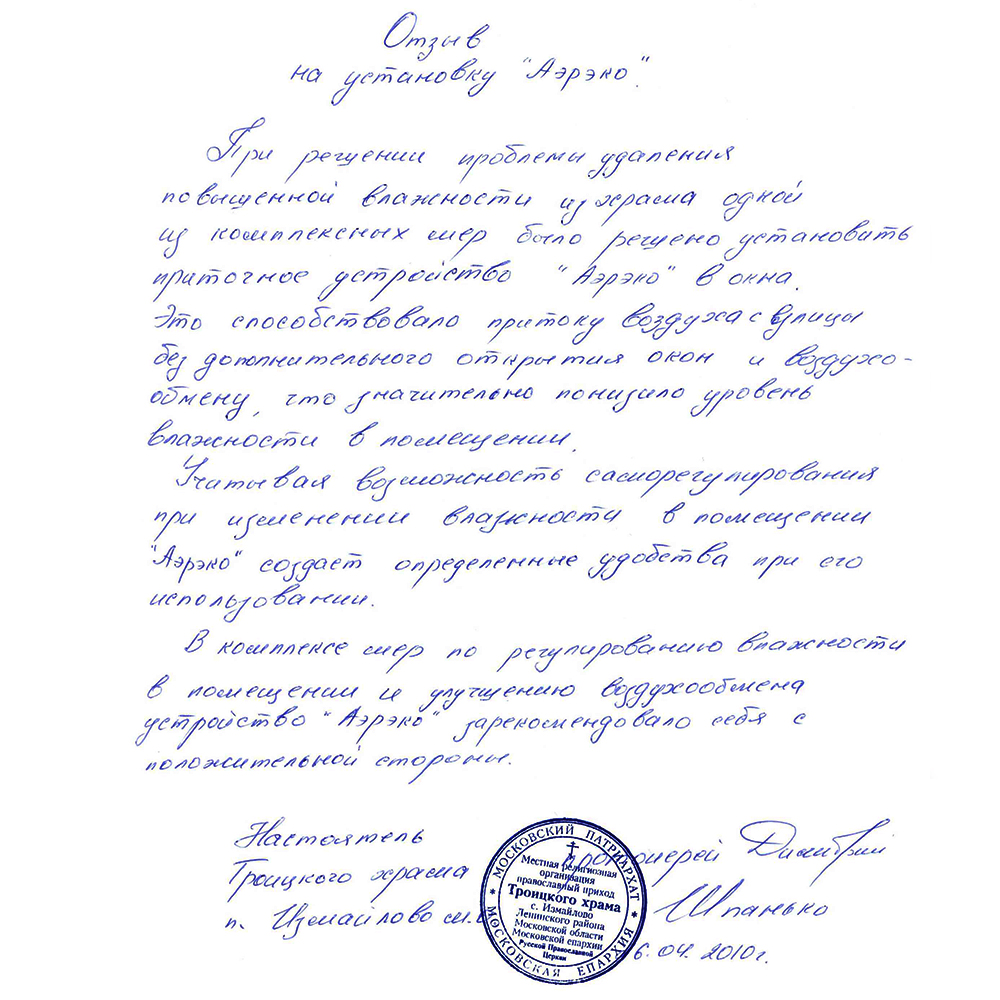 Отзыв
на установку "Аэрэко".
При решении проблемы удаления
повышенной влажности из храма одной
из комплексных мер было решено установить
приточное устройство "Аэрэко" в окна.
Это способствовало притоку воздуха с улицы
без дополнительного открытия окон и воздухо-
обмену, что значительно понизило уровень
влажности в помещении.
Учитывая возможность саморегулирования
при изменении влажности в помещении
"Аэрэко" создаёт определенные удобства при его
использовании.
В комплексе мер по регулированию влажности
в помещении и улучшению воздухообмена
устройство "Аэрэко" зарекомендовало себя с
положительной стороны.
Настоятель
Троицкого храма
п. Измайлово м.
протоиерей Димитрий
Шпанько
6.04.2010г.
МОСКОВСКИЙ ПАТРИАРХАТ
МОСКОВСКАЯ ЕПАРХИЯ
Местная религиозная
организация
православный приход
Троицкого храма
с. Измайлово
Ленинского района
Московской области
Московской епархии
Русской Православной
Церкви